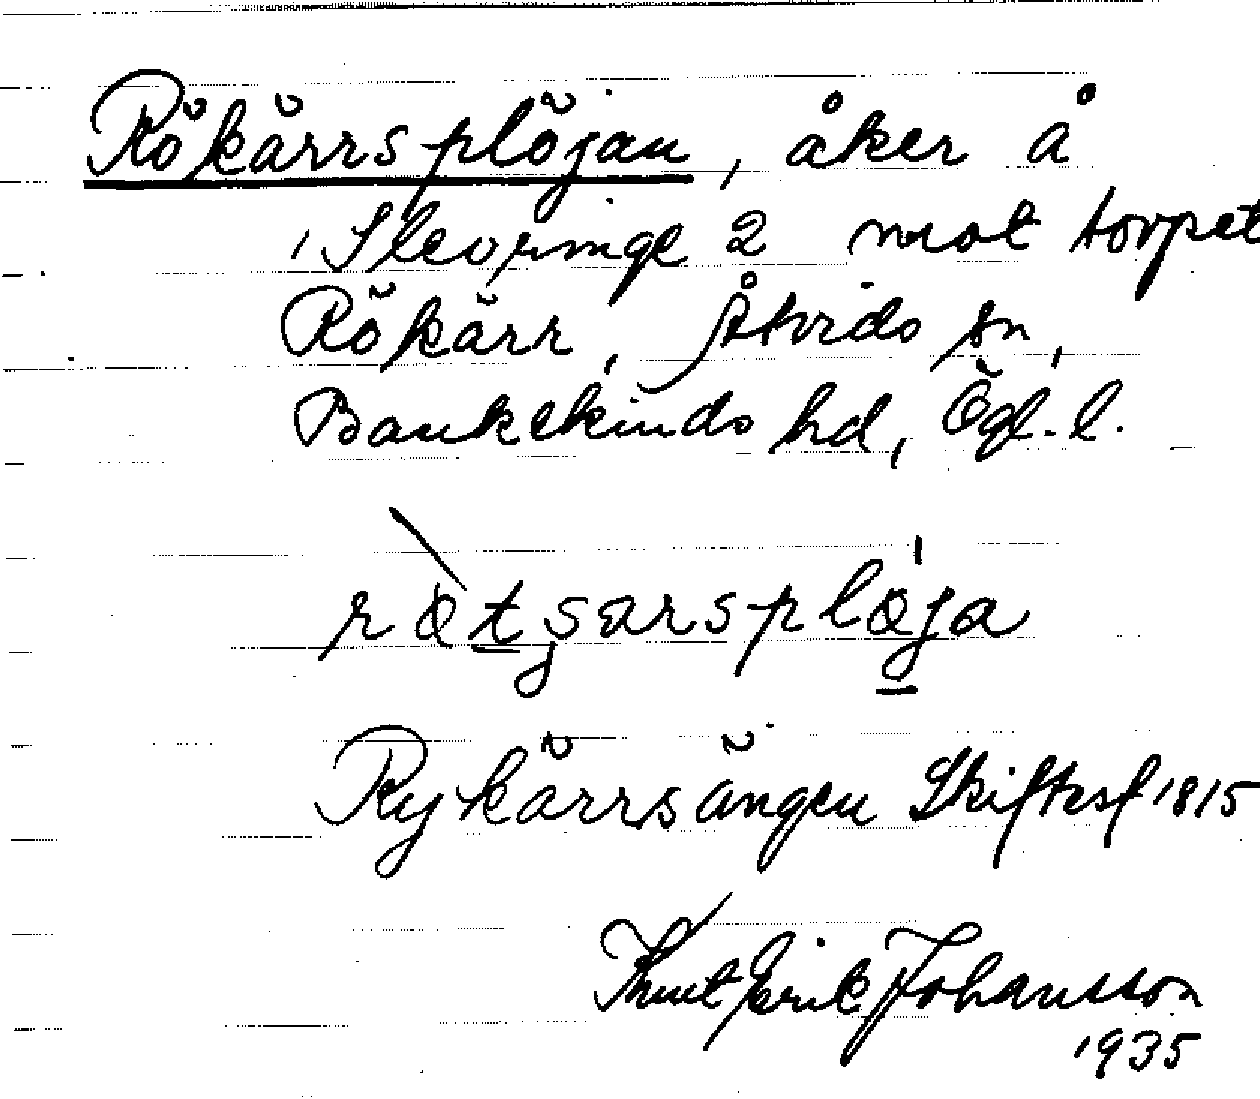 Rökärrsplöjan, åker å
Slevringe 2 mot torpet
Rökärr, Åtvids sn,
Bankekinds hd, Ögl. l.
Rykärrsängen Skifteskl 1815
Knut Erik Johansson
1935